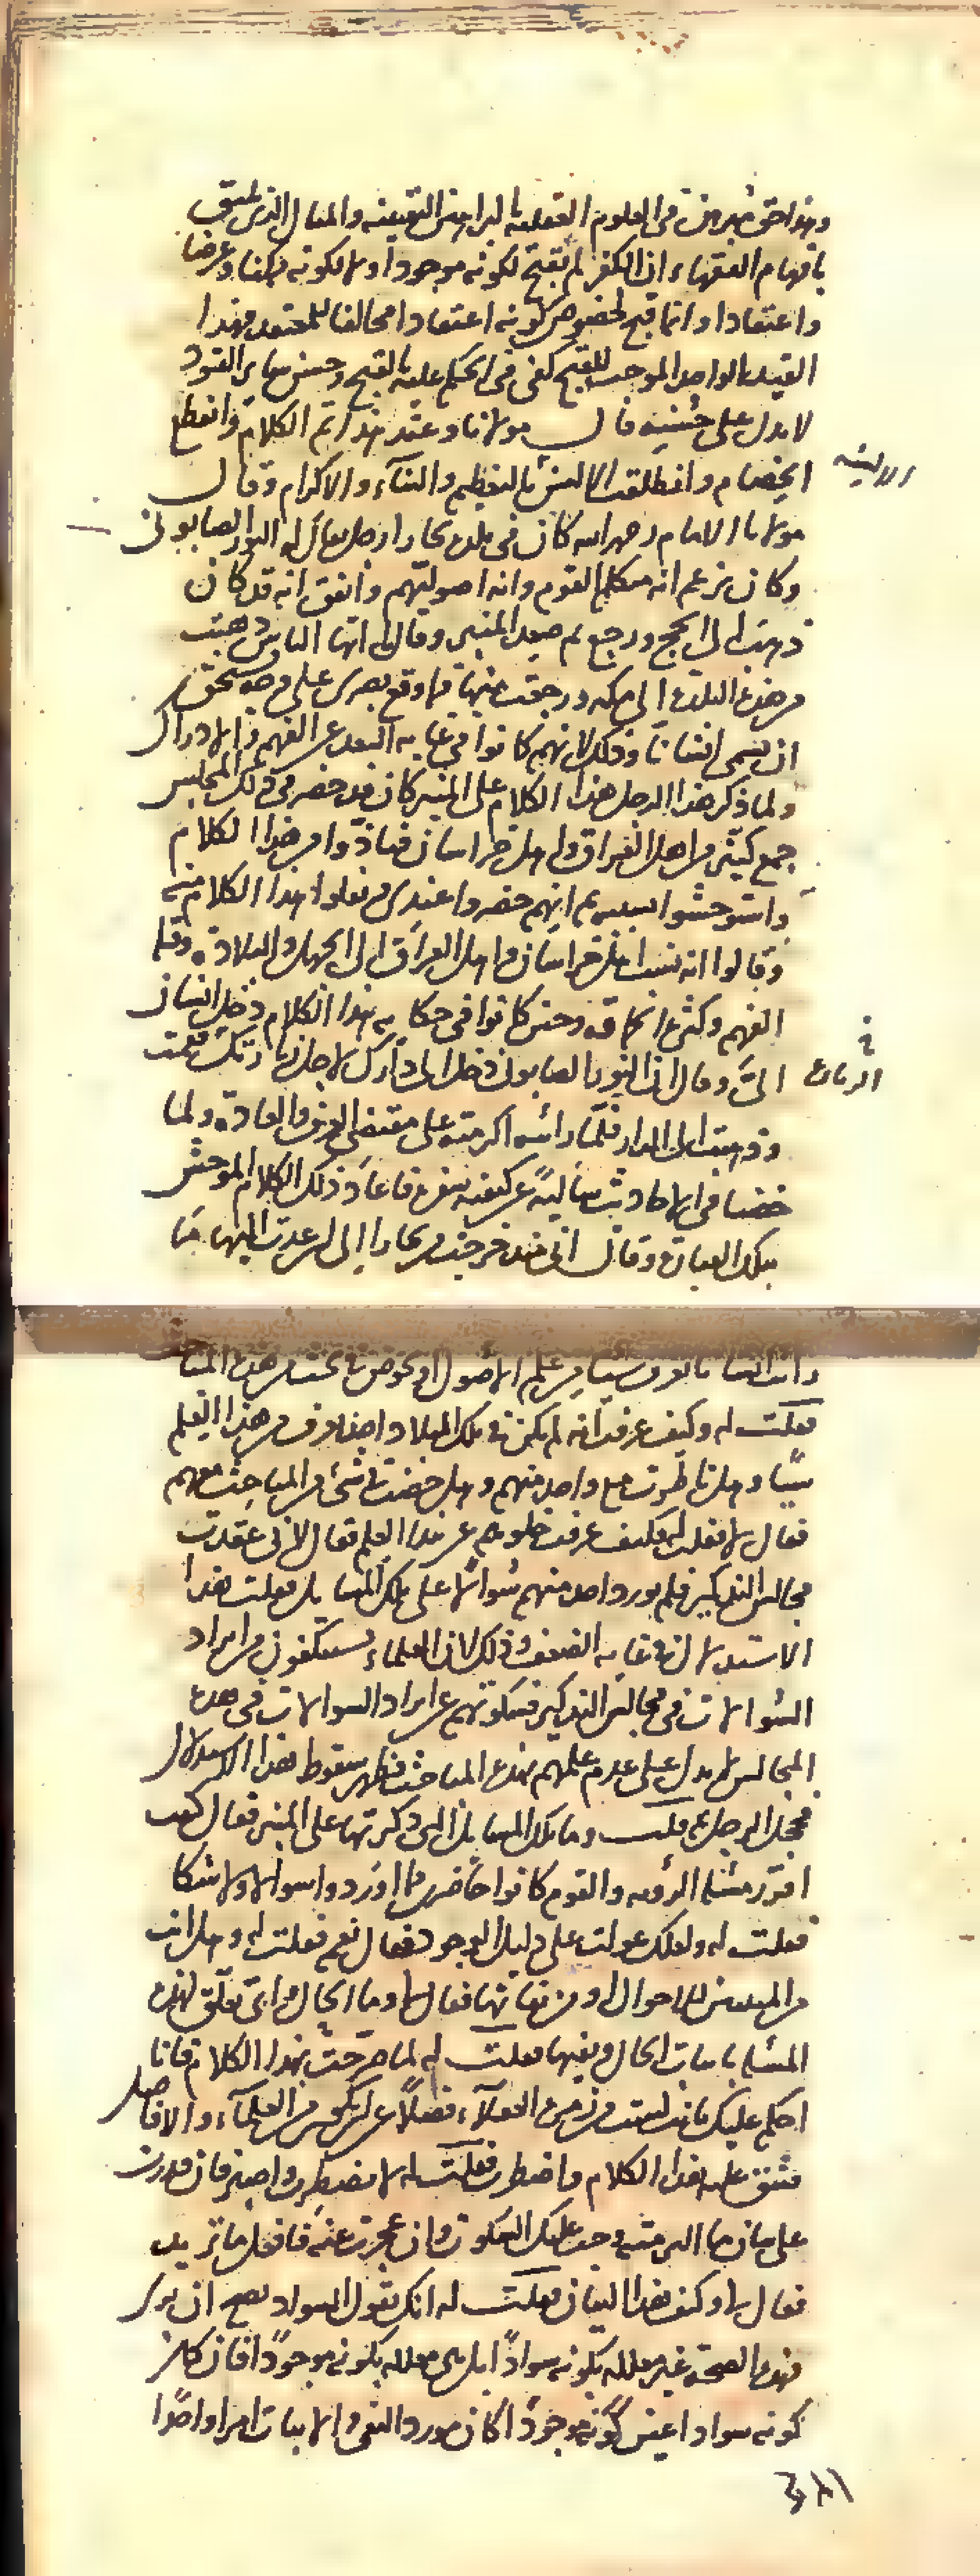 وهذا حق مبرهن في العلوم العقلية بالبراهين اليقينية والمثال الذي يليق
بافهام الفقهاء ان الكفر لم يقبح لكونه موجودا ولا لكونه ممكنا وعرضا
واعتقادا وانما قبح لخصوص كونه اعتقادا مخالفا للمعتقد فهذا
القيد الواحد الموجب للقبح كفى في الحكم عليه بالقبح وحسن سائر القيود
لا يدل على حسنه قال مولانا وعند هذا تم الكلام وانقطع
الخصام وانطلقت الالسن بالتعظيم والثناء والاكرام وقال
الالسنة
مولانا الامام رحمه الله كان في بلدة بخارا رجل يقال له النور الصابوني
وكان يزعم انه متكلم القوم وانه اصوليهم واتفق انه قد كان
ذهب الى الحج ورجع ثم صعد المنبر وقال ايها الناس ذهبت
من هذه البلدة الى مكة ورجعت منها فما وقع بصري على وجه يستحق
ان يسمى انسانا وذلك لانهم كانوا في غاية البعد عن الفهم والادراك
ولما ذكر هذا الرجل هذا الكلام على المنبر كان قد حضر في ذلك المجلس
جمع كثير من اهل العراق واهل خراسان فتاذوا من هذا الكلام
واستوحشوا بسببه ثم انهم حضروا عندي ونقلوا هذا الكلام منه
وقالوا انه نسب اهل خراسان واهل العراق الى الجهل والبلادة وقلة
الفهم وكثرة الحماقة وحين كانوا في حكاية هذا الكلام دخل انسان
الي وقال ان النور الصابوني دخل الى دارك لاجل زيارتك فقمت
الزيارة
وذهبت الى الدار فلما رأيته اكرمته على مقتضى العرف والعادة ولما
خضنا في الاحاديث سألته عن كيفية سفره فاعاد ذلك الكلام الموحش
بتلك العبارة وقال اني منذ خرجت من بخارا الى ان عدت اليها ما
رأيت انسانا يعرف شيئا من علم الاصول او يخوض في بحث من هذه المباحث
فقلت له وكيف عرفت انه لم يكن في تلك البلاد واحد يعرف من هذا العلم
شيئا وهل ناظرت مع واحد منهم وهل خضت في شئ من المباحث معهم
فقال لا فقلت له فكيف عرفت خلوهم عن هذا العلم فقال لاني عقدت
مجالس التذكير فلم يورد واحد منهم سؤالا على تلك المسايل فقلت هذا
الاستدلال في غاية الضعف وذلك لان العلماء يستنكفون من ايراد
السؤالات في مجالس التذكير فسكوتهم عن ايراد السؤالات في هذه
المجالس لا يدل على عدم علمهم بهذه المباحث فظهر سقوط هذا الاستدلال
فخجل الرجل ثم قلت وما تلك المسايل التي ذكرتها على المنبر فقال كنت
اقرر مسئلة الرؤية والقوم كانوا حاضرين فما اوردوا سؤالا ولا اشكالا
فقلت له ولعلك عولت على دليل الوجود فقال نعم فقلت له وهل انت
من المثبتين للاحوال او من نفاتها فقال وما الحال واي تعلق لهذه
المسئلة باثبات الحال ونفيها فقلت له لما صرحت بهذا الكلام فانا
احكم عليك بانك لست من زمرة العقلاء فضلا عن ان تكون من العلماء والافاضل
فشق عليه هذا الكلام واضطرب فقلت له لا تضطرب واصبر فان قدرت
على بيان ما الزمته وجب عليك السكوت وان عجزت عنه فافعل ما تريد
فقال وكيف هذا البيان فقلت له انك تقول السواد يصح ان يرى
فهذه الصحة غير معللة بكونه سوادا بل هي معللة بكونه موجودا فان كان
كونه سوادا عين كونه موجودا كان مورد النفي والاثبات امرا واحدا